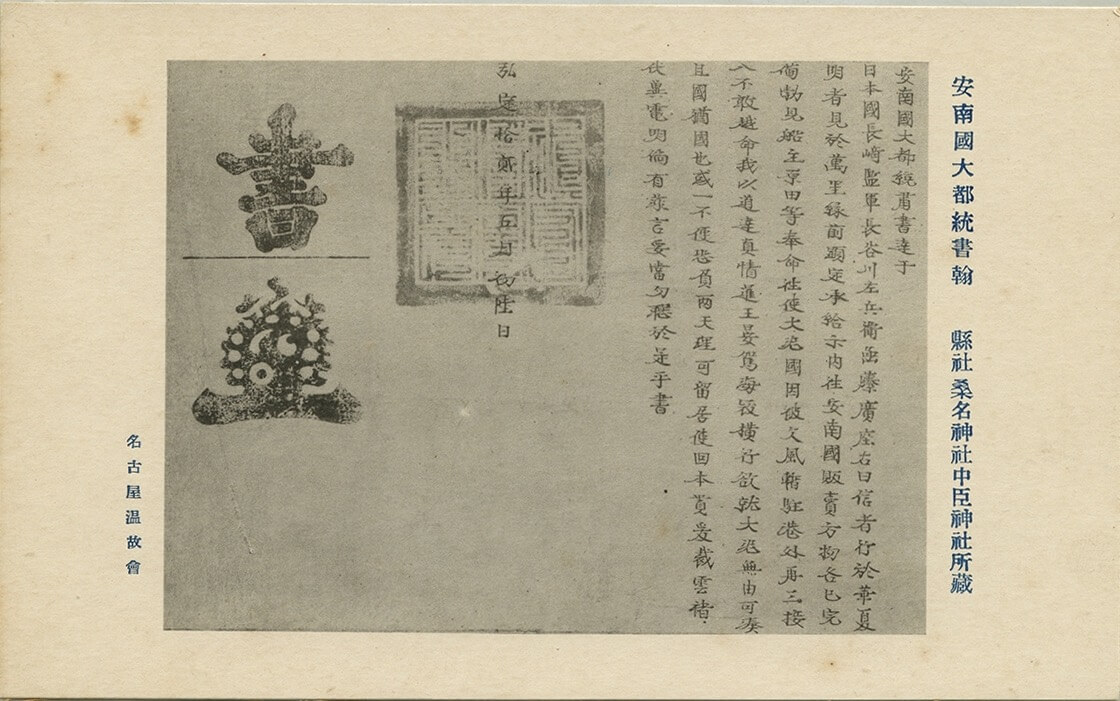 安南國大都統書翰　縣社桑名神社中臣神社所藏
安南國大都統肅書達于
日本國長崎監軍長谷川左兵衛藤廣座右曰信者行於華夏
明者見於萬里緣前 定承給示內往安南國販賣方物各已完
備 見船主 田等奉命往使大 國因被文風暫駐港外再三接
人不敢違命我以道達真情 王 駕海 橫行欲就大 無由可
且國猶國也或一不便恐負兩天理可留居使回本 爰裁雲楮
伏冀電明倘有 言妥當勿 於是乎書
弘定拾貳年五月初陸日
書
名古屋温故會